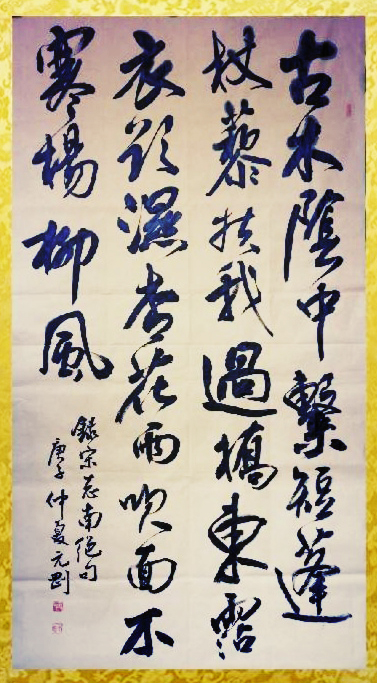 古木陰中繫短蓬
杖藜扶我過橋東霑
衣欲濕杏花雨吹面不
寒楊柳風
錄宋志南絕句
庚子仲夏元剛